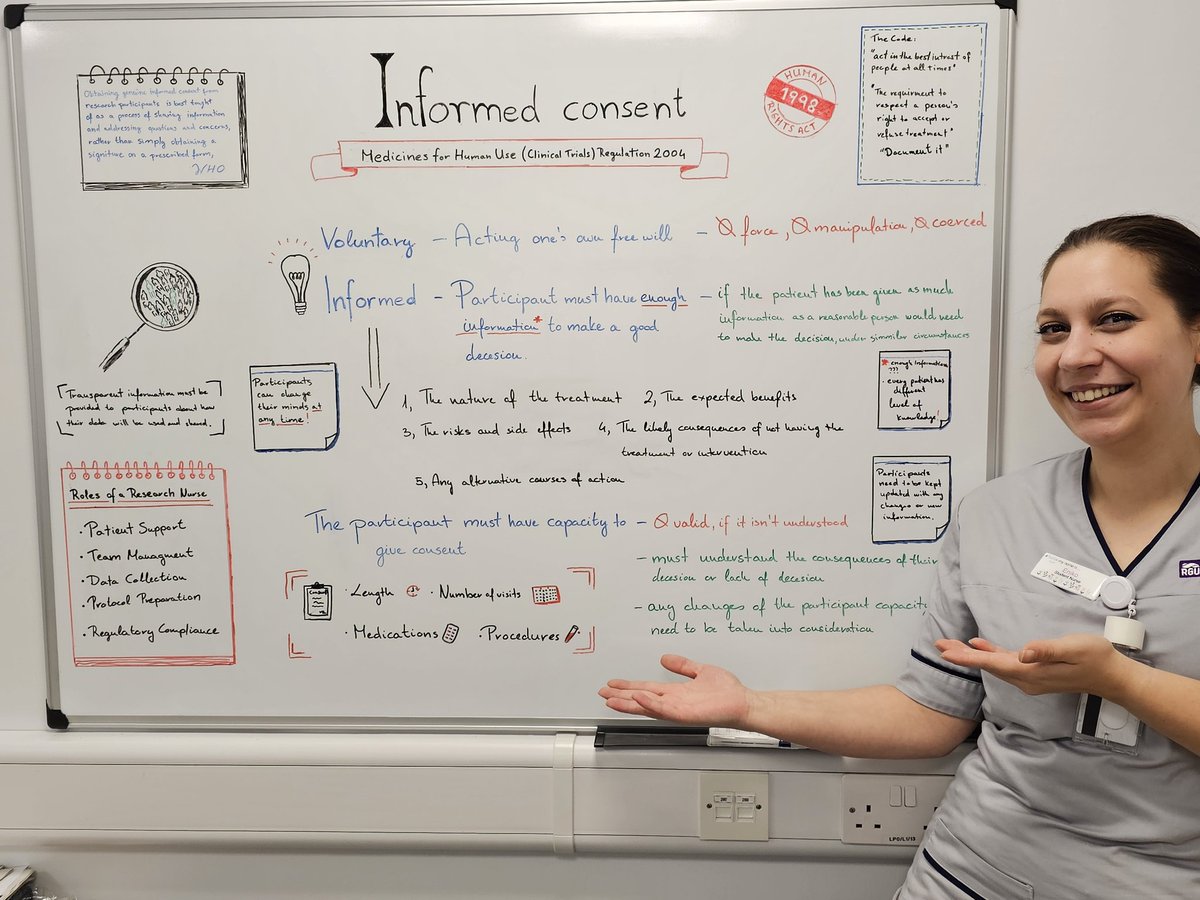 Informed consent
Medicines for Human Use (Clinical Trials) Regulation 2004
HUMAN
1998
RIGHTS ACT
Obtaining genuine informed consent from
research participants is best thought
of as a process of sharing information
and addressing questions and concerns,
rather than simply obtaining a
signiture on a prescribed form,
The Code:
"act in the best intrest of
people at all times"
"The requirment to
respect a person's
right to accept or
refuse treatment"
"Document it"
Voluntary - Acting one's own free will - Ø force, Ø manipulation, Ø coerced
Informed - Participant must have enough
information* to make a good
decesion.
- if the patient has been given as much
information as a reasonable person would need
to make the decision, under simmilar circumstances
Transparent information must be
provided to participants about how
their data will be used and shared.
Participants
can change
their minds at
any time!
1, The nature of the treatment 2, The expected benefits
3, The risks and side effects 4, The likely consequences of not having the
treatment or intervention
5, Any alternative courses of action
* enough information
???
· every patient has
different
level of
knowledge!
Participants
need to be kept
updated with any
changes or new
information.
Roles of a Research Nurse
· Patient Support
· Team Managment
· Data Collection
· Protocol Preparation
· Regulatory Compliance
The participant must have capacity to
give consent
- Ø valid, if it isn't understood
- must understand the consequences of their
decesion or lack of decesion
- any changes of the participant capacity
need to be taken into consideration
Consent
· Length · Number of visits
· Medications · Procedures
Student Nurse
RGU
LPO/L1/13